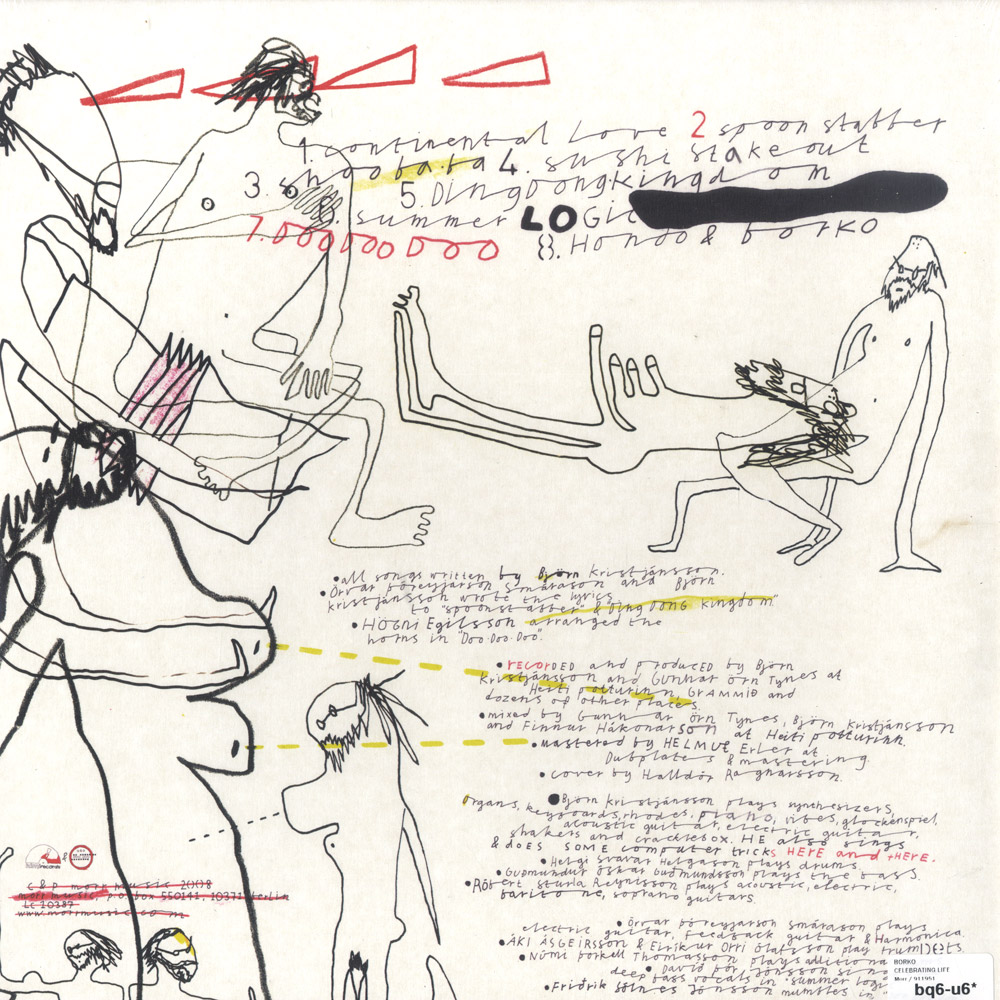 1. continental Love 2 spoonstabber
3. shoobaba 4. sushi stakeout
5. DingDongKingdom
6. summer LOGic
7. DOO DOO DOO
8. Hondo & borko
•all songs written by Björn Kristjánsson.
Örvar Þóreyjarson Smárason and Björn
Kristjánsson wrote the lyrics
to "spoonstabber" & "DingDONG Kingdom"
•HÖGNi Egilsson arranged the
horns in "Doo Doo Doo".
•recorDED and produceD by Björn
Kristjánsson and GUNNAR Örn Tynes at
Heiti potturinn, GRAMMIÐ and
dozens of other places.
•mixed by Gunnar Örn Tynes, Björn Kristjánsson
and Finnur Hákonarson at Heiti potturinn.
•mastered by HELMUt Erler at
Dubplates & mastering.
•cover by Halldór Ragnarsson.
•Björn Kristjánsson plays synthesizers,
organs, keyboards, rhodes, piano, vibes, glockenspiel,
acoustic guitar, electric guitar,
shakers and cracklebox. HE also sings
& does SOME computer tricks HERE and tHERE.
•Helgi Svavar Helgason plays drums.
•Guðmundur Óskar Guðmundsson plays the bass.
•Róbert Sturla Reynisson plays acoustic, electric,
baritone, soprano guitars.
•Örvar Þóreyjarson Smárason plays
electric guitar, feedback guitar & Harmonica.
•ÁKI ÁSGEIRSSON & Eiríkur Orri Ólafsson play trumpets.
•Númi Þorkell Thomasson plays additional
•David Þór Jónsson sing
deep bass vocals in "summer logi
•Friðrik Sólnes Jónsson mumbles in "
records
&
c & p morr music 2008
morr music po box 550141, 10371 berlin
LC 10387
www.morrmusic.com
BORKO
CELEBRATING LIFT
Morr / 911951
bq6-u6*